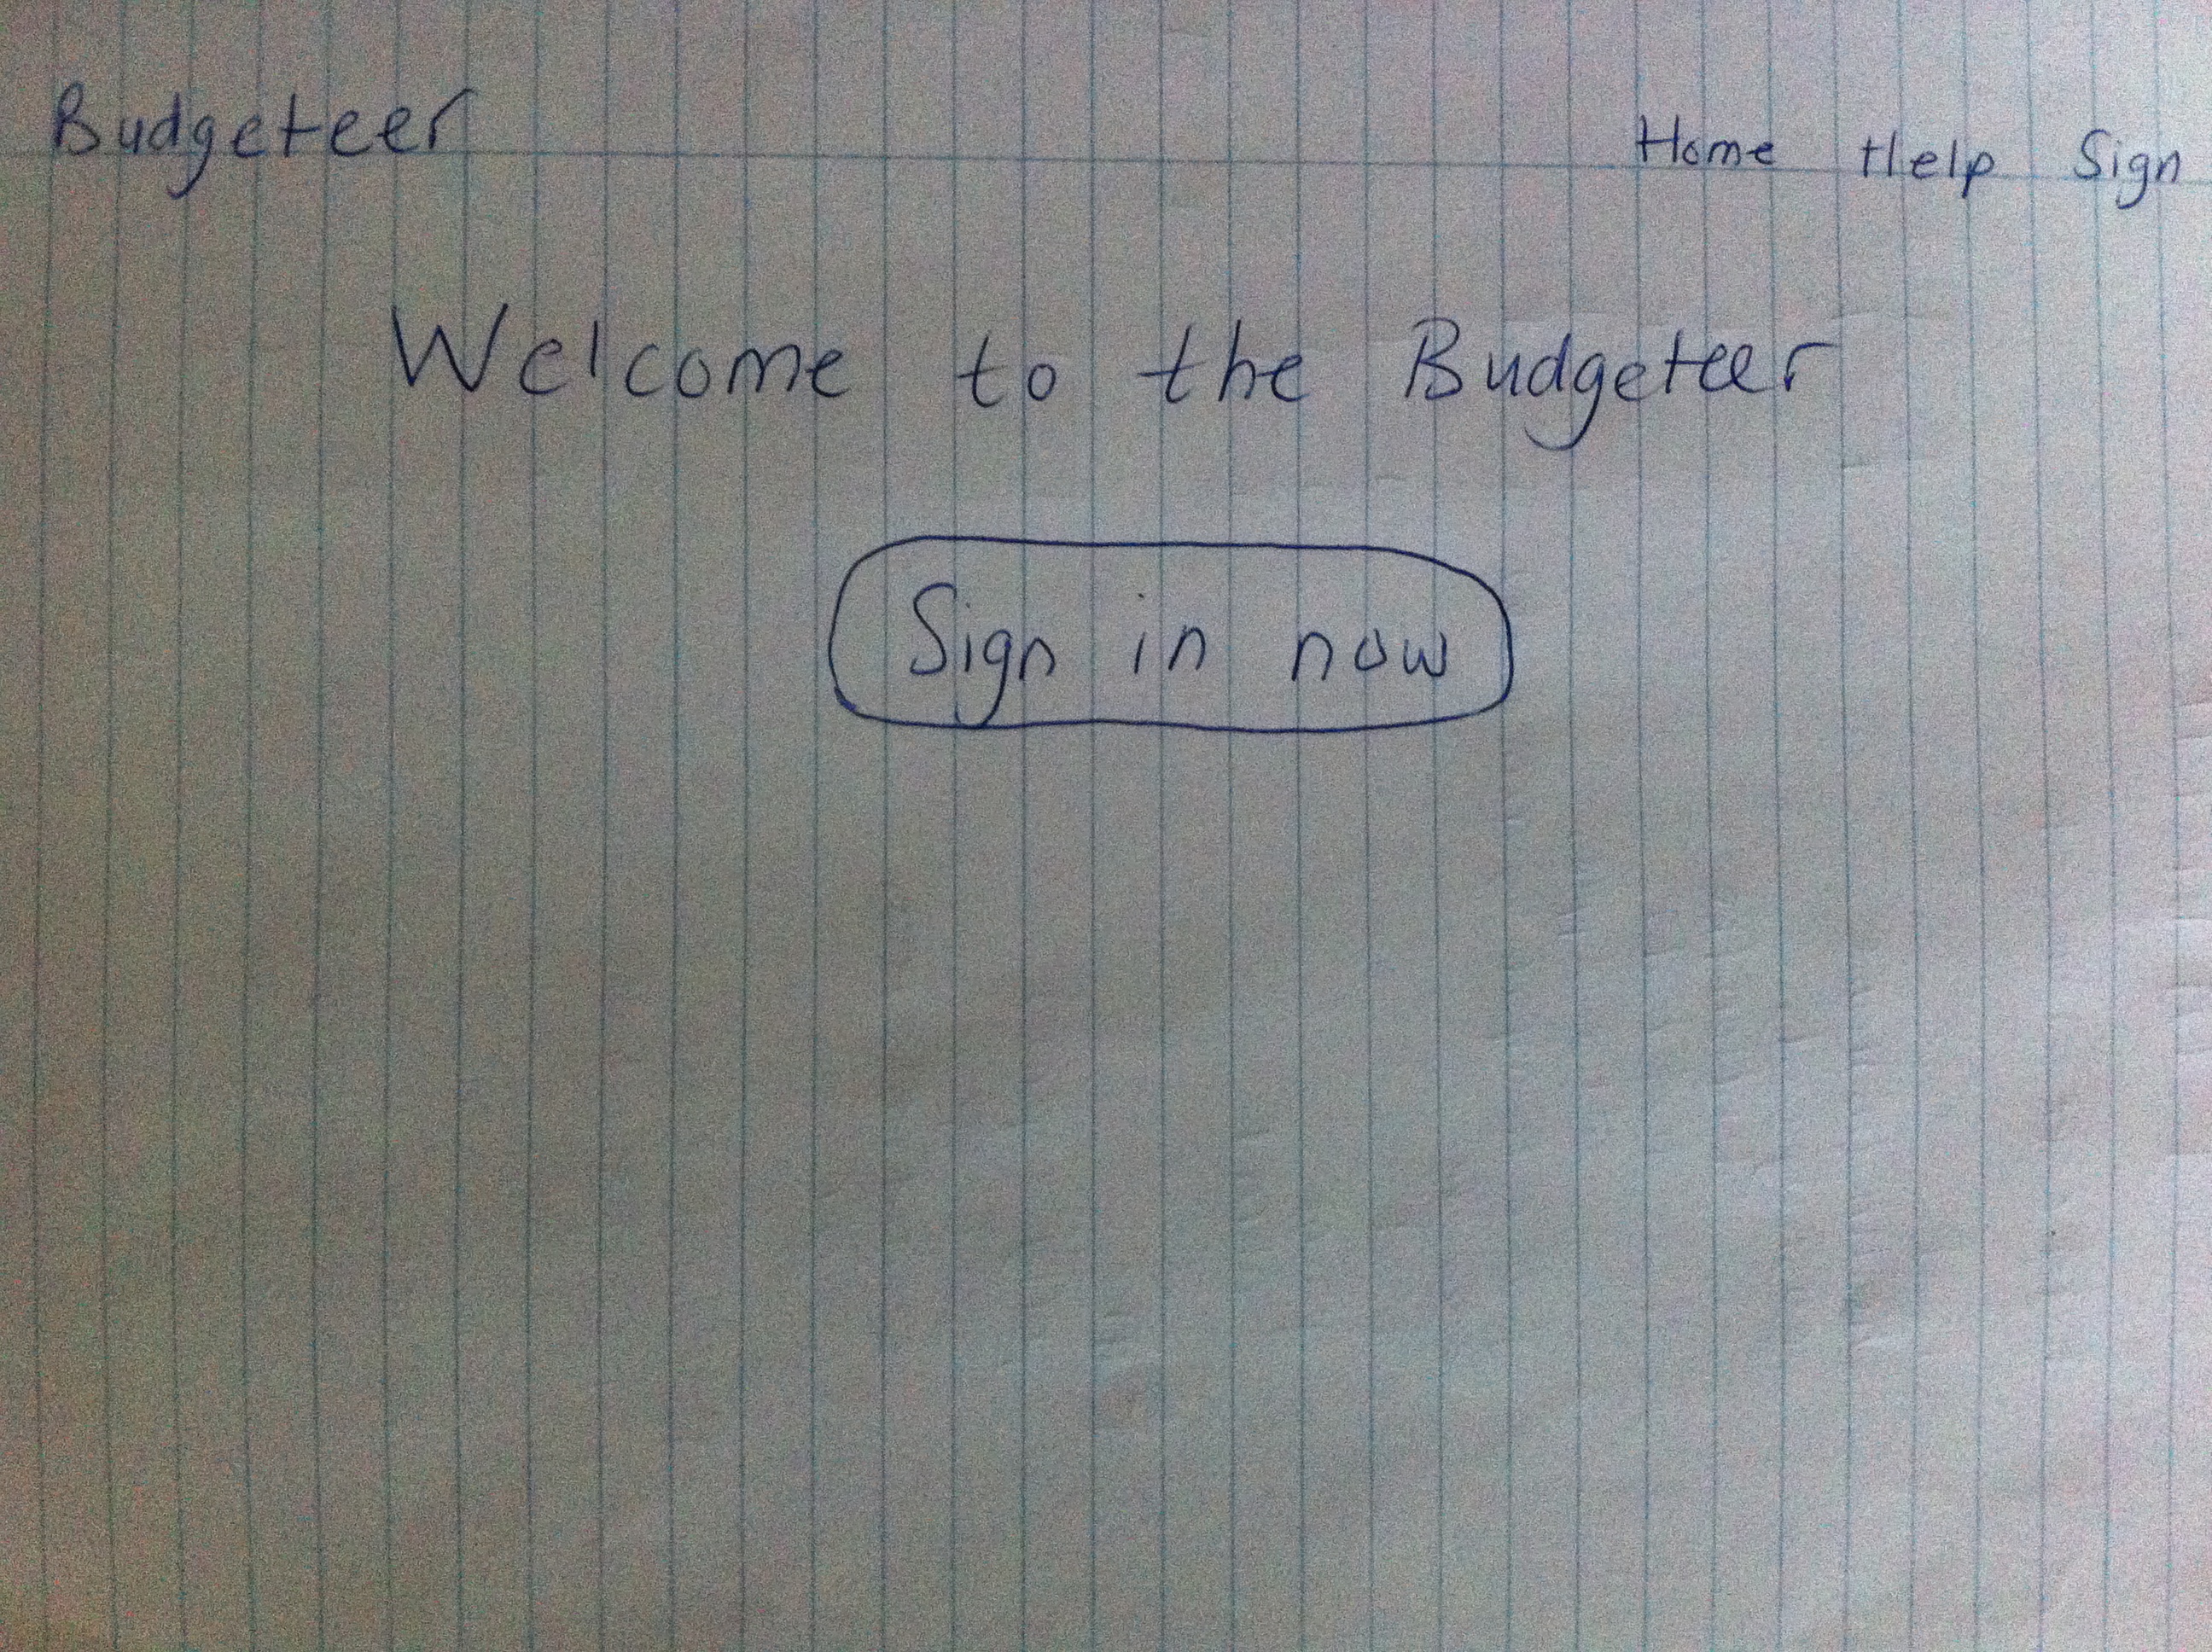 Budgeteer
Home Help Sign
Welcome to the Budgeteer
Sign in now